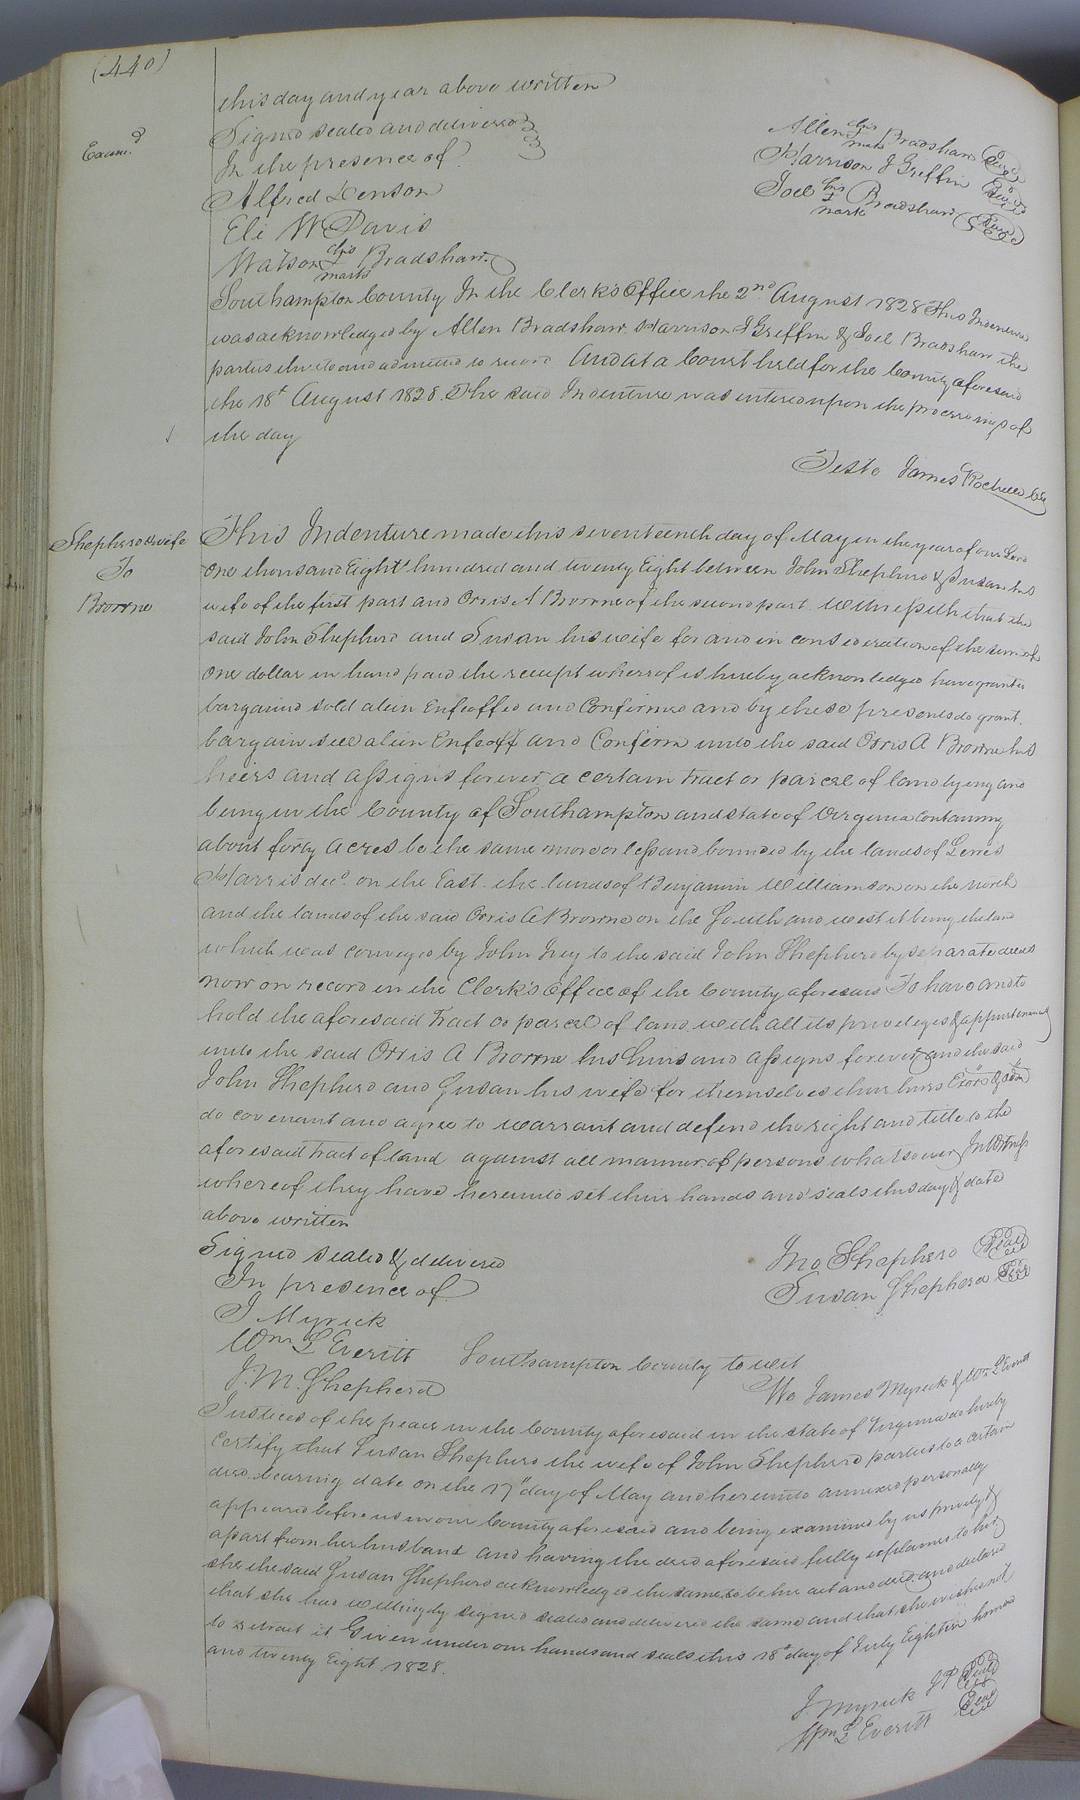 (440)
this day and year above written
Examd
Signed sealed and delivered
In the presence of
Alfred Denson
Eli W Davis
Watson his mark Bradshaw
Allen his mark Bradshaw Seal
Harrison J Griffin Seal
Joel his mark Bradshaw Seal
Southampton County In the Clerk's Office the 2nd August 1828 This Indenture
was acknowledged by Allen Bradshaw Harrison J Griffin & Joel Bradshaw the
parties thereto and admitted to record And at a Court held for the County aforesaid
the 18th August 1828. The said Indenture was entered upon the proceedings of
the day
Teste James Rochelle Clk
Shepherd & wife
To
Browne
This Indenture made this seventeenth day of May in the year of our Lord
One thousand Eight hundred and twenty Eight between John Shepherd & Susan his
wife of the first part and Orris A Browne of the second part Witnesseth that the
said John Shepherd and Susan his wife for and in consideration of the sum of
One dollar in hand paid the receipt whereof is hereby acknowledged have granted
bargained sold alien Enfeoffed and Confirmed and by these presents do grant.
bargain sell alien Enfeoff and Confirm unto the said Orris A Browne his
heirs and assigns forever a certain tract or parcel of land lying and
being in the County of Southampton and state of Virginia containing
about forty acres be the same more or less and bounded by the lands of Lewis
Harris decd. on the East. the lands of Benjamin Williamson on the north
and the lands of the said Orris A Browne on the South and west it being the land
which was conveyed by John Ivy to the said John Shepherd by separate deeds
now on record in the Clerk's Office of the County aforesaid To have and to
hold the aforesaid tract or parcel of land with all its privileges & appurtenances
unto the said Orris A Browne his heirs and assigns forever and the said
John Shepherd and Susan his wife for themselves their heirs Exors & adm
do covenant and agree to warrant and defend the right and title to the
aforesaid tract of land against all manner of persons whatsoever In Witness
whereof they have hereunto set their hands and seals this day & date
above written
Signed sealed & delivered
In presence of
J Myrick
Wm L Everitt
J. M. Shepherd
Jno Shepherd Seal
Susan Shepherd Seal
Southampton County to wit
We James Myrick & Wm L Everitt
Justices of the peace in the County aforesaid in the state of Virginia do hereby
certify that Susan Shepherd the wife of John Shepherd parties to a certain
deed bearing date on the 17th day of May and hereunto annexed personally
appeared before us in our County aforesaid and being examined by us privily &
apart from her husband and having the deed aforesaid fully explained to her
she the said Susan Shepherd acknowledged the same to be her act and deed and declared
that she had willingly signed sealed and delivered the same and that she wished not
to retract it Given under our hands and seals this 18th day of July Eighteen hundred
and twenty Eight 1828.
J. Myrick J P Seal
Wm L Everitt Seal